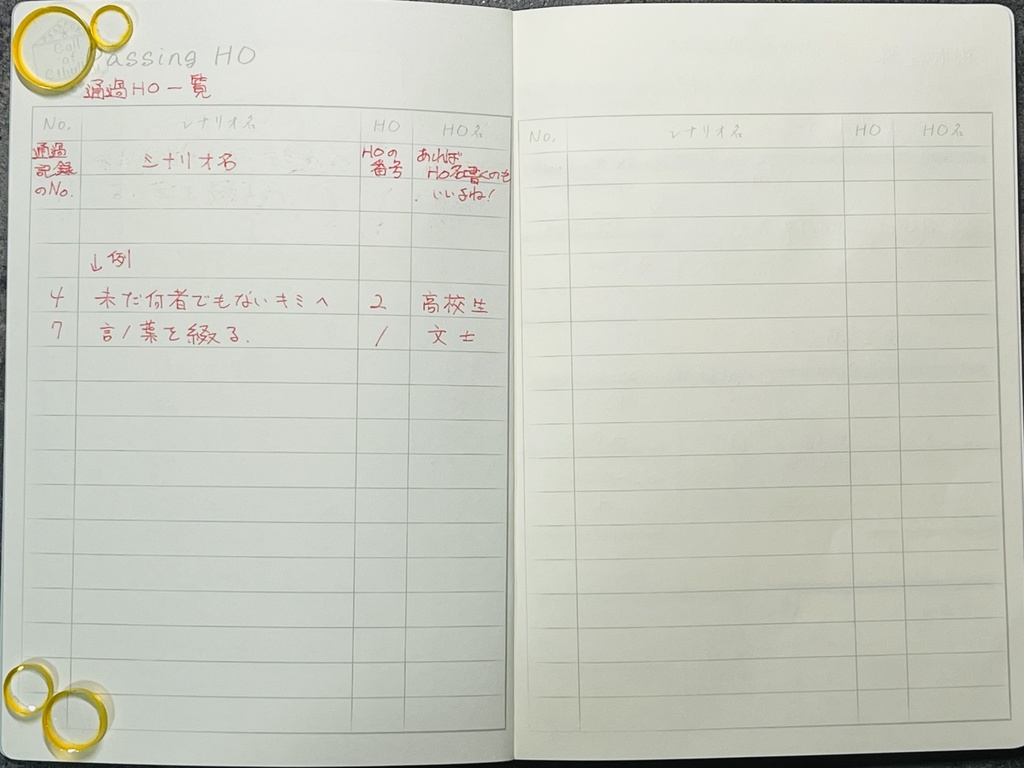 Call
of
Cthulhu
Passing HO
通過HO一覧
No. シナリオ名 HO HO名
通過記録のNo. シナリオ名 HOの番号 あればHO名書くのもいいよね!
↓例
4 未だ何者でもないキミへ 2 高校生
7 言ノ葉を綴る. 1 文士
No. シナリオ名 HO HO名